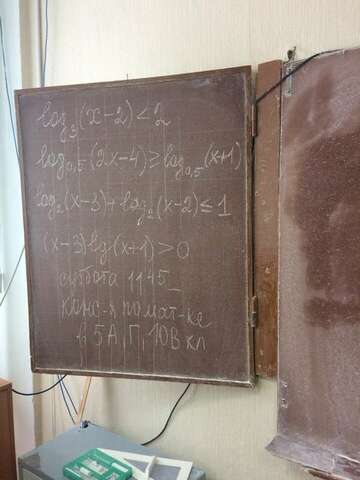 log₃(x-2)<2
log₀,₅(2x-4)≥log₀,₅(x+1)
log₂(x-3)+log₂(x-2)≤1
(x-3)lg(x+1)>0
суббота 11 45
конс-я по мат-ке
в 5А,П, 10В кл